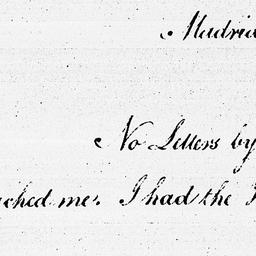 Madrid
No Letters by
ached me. I had the